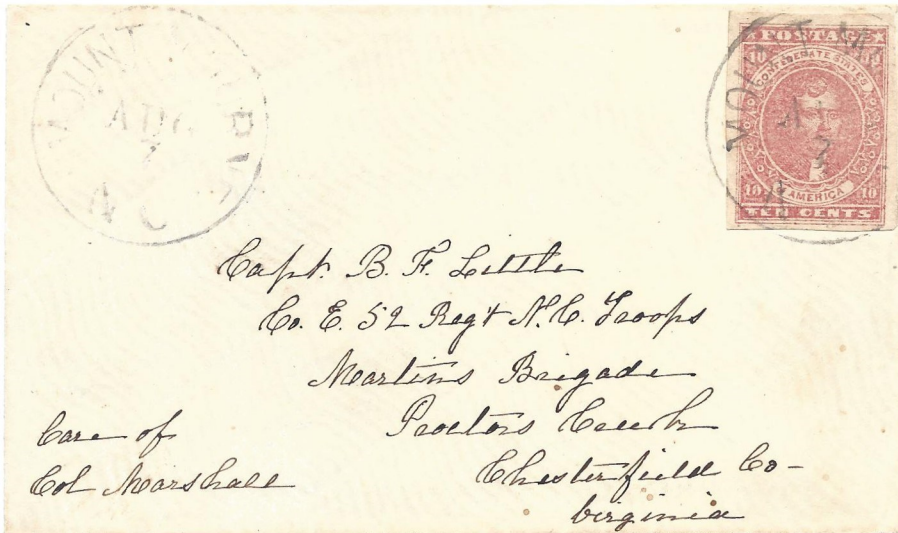 MOUNT
AUG
7
N C
POSTAGE
10 10
CONFEDERATE STATES
10 10
AMERICA
TEN CENTS
MOUNT
7
N
Capt. B. F. Little
Co. E. 52 Regt N.C. Troops
Martins Brigade
Proctors Creek
Chesterfield Co-
Virginia
Care of
Col Marshall